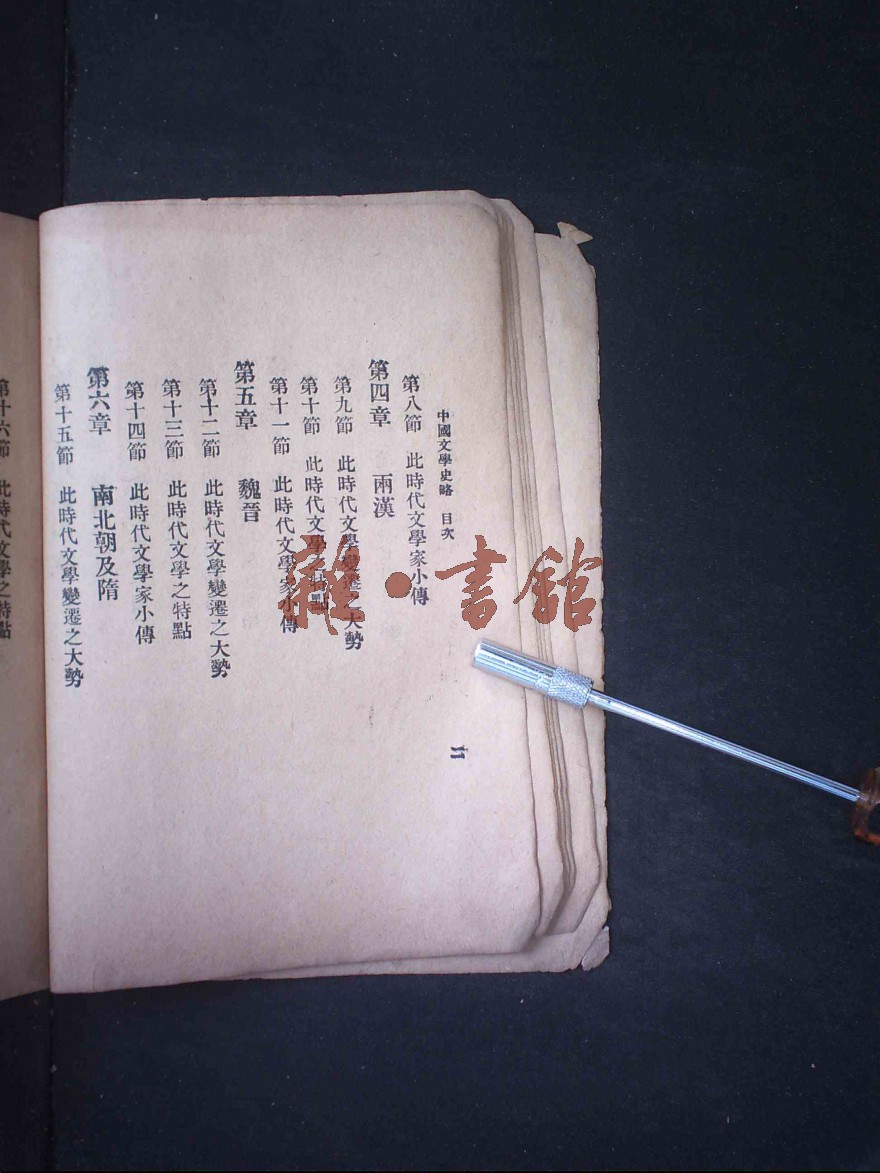 中國文學史略 目次
二
第八節 此時代文學家小傳
第四章 兩漢
第九節 此時代文學變遷之大勢
第十節 此時代文學之特點
第十一節 此時代文學家小傳
第五章 魏晉
第十二節 此時代文學變遷之大勢
第十三節 此時代文學之特點
第十四節 此時代文學家小傳
第六章 南北朝及隋
第十五節 此時代文學變遷之大勢
第十六節 此時代文學之特點
雜·書館